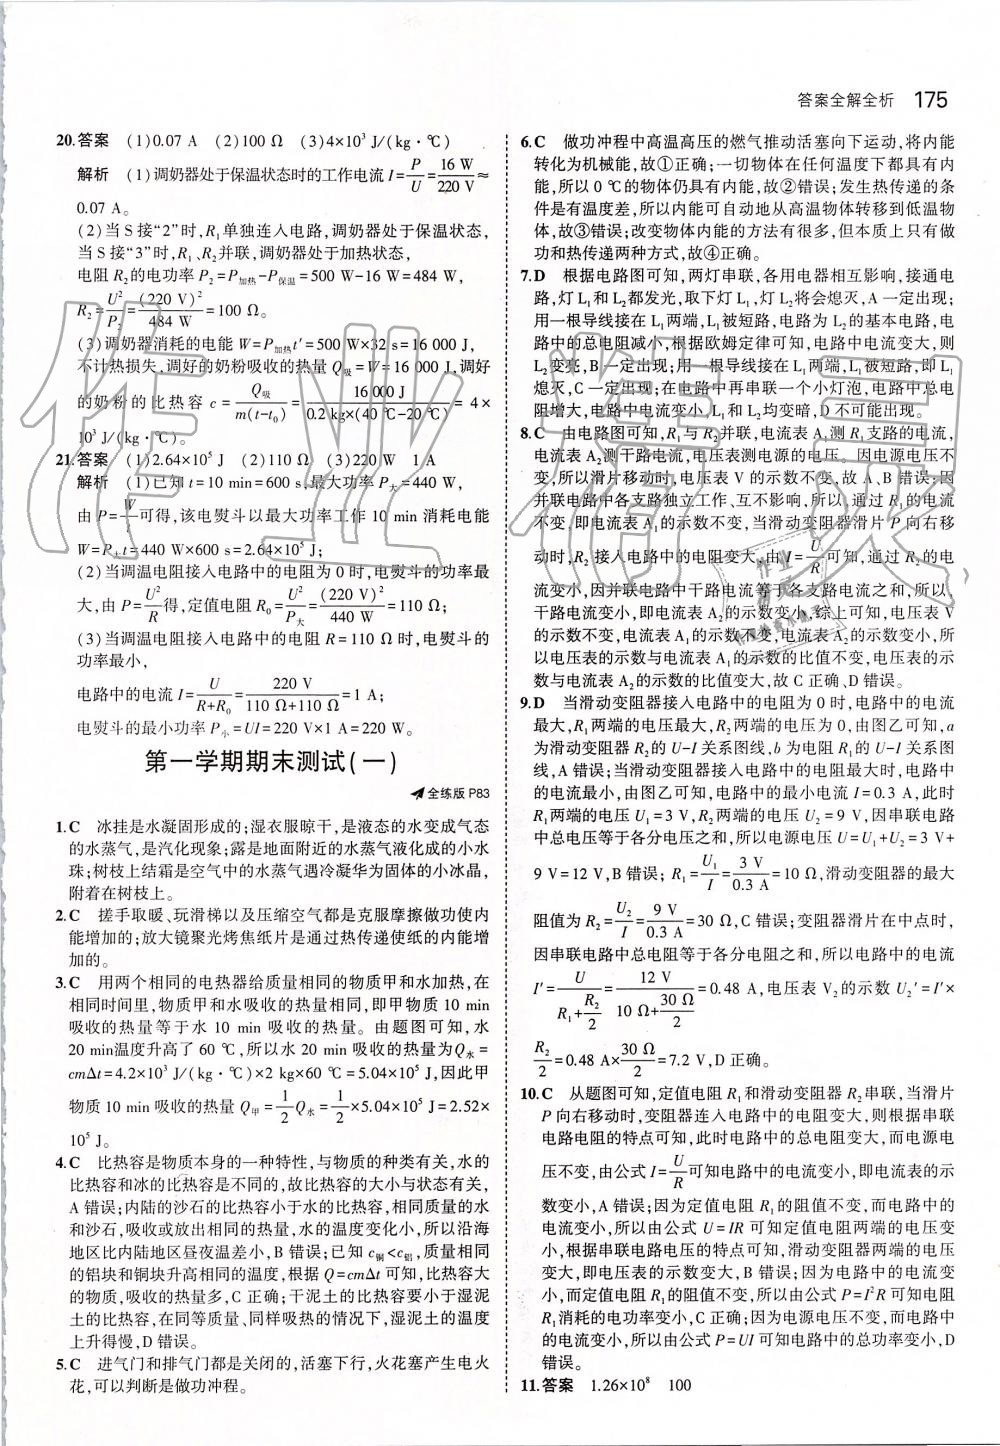 答案全解全析 175
20.答案 (1)0.07 A (2)100 Ω (3)4×10³ J/(kg·℃)
解析 (1)调奶器处于保温状态时的工作电流I=P/U=16 W/220 V≈
0.07 A。
(2)当S接“2”时,R₁单独连入电路,调奶器处于保温状态,
当S接“3”时,R₁、R₂并联,调奶器处于加热状态,
电阻R₂的电功率P₂=P加热-P保温=500 W-16 W=484 W,
R₂=U²/P₂=(220 V)²/484 W=100 Ω。
(3)调奶器消耗的电能W=P加热t'=500 W×32 s=16 000 J,
不计热损失,调好的奶粉吸收的热量Q吸=W=16 000 J,调好
的奶粉的比热容c=Q吸/m(t-t₀)=16 000 J/0.2 kg×(40 ℃-20 ℃)=4×
10³ J/(kg·℃)。
21.答案 (1)2.64×10⁵ J (2)110 Ω (3)220 W 1 A
解析 (1)已知t=10 min=600 s,最大功率P大=440 W,
由P=W/t可得,该电熨斗以最大功率工作10 min消耗电能
W=P大t=440 W×600 s=2.64×10⁵ J;
(2)当调温电阻接入电路中的电阻为0时,电熨斗的功率最
大,由P=U²/R得,定值电阻R₀=U²/P大=(220 V)²/440 W=110 Ω;
(3)当调温电阻接入电路中的电阻R=110 Ω时,电熨斗的
功率最小,
电路中的电流I=U/R+R₀=220 V/110 Ω+110 Ω=1 A;
电熨斗的最小功率P小=UI=220 V×1 A=220 W。
第一学期期末测试(一)
全练版P83
1.C 冰挂是水凝固形成的;湿衣服晾干,是液态的水变成气态
的水蒸气,是汽化现象;露是地面附近的水蒸气液化成的小水
珠;树枝上结霜是空气中的水蒸气遇冷凝华为固体的小冰晶,
附着在树枝上。
2.C 搓手取暖、玩滑梯以及压缩空气都是克服摩擦做功使内
能增加的;放大镜聚光烤焦纸片是通过热传递使纸的内能增
加的。
3.C 用两个相同的电热器给质量相同的物质甲和水加热,在
相同时间里,物质甲和水吸收的热量相同,即甲物质10 min
吸收的热量等于水10 min吸收的热量。由题图可知,水
20 min温度升高了60 ℃,所以水20 min吸收的热量为Q水=
cmΔt=4.2×10³ J/(kg·℃)×2 kg×60 ℃=5.04×10⁵ J,因此甲
物质10 min吸收的热量Q甲=1/2Q水=1/2×5.04×10⁵ J=2.52×
10⁵ J。
4.C 比热容是物质本身的一种特性,与物质的种类有关,水的
比热容和冰的比热容是不同的,故比热容的大小与状态有关,
A错误;内陆的沙石的比热容小于水的比热容,相同质量的水
和沙石,吸收或放出相同的热量,水的温度变化小,所以沿海
地区比内陆地区昼夜温差小,B错误;已知c铜<c铝,质量相同
的铝块和铜块升高相同的温度,根据Q=cmΔt可知,比热容大
的物质,吸收的热量多,C正确;干泥土的比热容要小于湿泥
土的比热容,在同等质量、同样吸热的情况下,湿泥土的温度
上升得慢,D错误。
5.C 进气门和排气门都是关闭的,活塞下行,火花塞产生电火
花,可以判断是做功冲程。
6.C 做功冲程中高温高压的燃气推动活塞向下运动,将内能
转化为机械能,故①正确;一切物体在任何温度下都具有内
能,所以0 ℃的物体仍具有内能,故②错误;发生热传递的条
件是有温度差,所以内能可自动地从高温物体转移到低温物
体,故③错误;改变物体内能的方法有很多,但本质上只有做
功和热传递两种方式,故④正确。
7.D 根据电路图可知,两灯串联,各用电器相互影响,接通电
路,灯L₁和L₂都发光,取下灯L₁,灯L₂将会熄灭,A一定出现;
用一根导线接在L₁两端,L₁被短路,电路为L₂的基本电路,电
路中的总电阻减小,根据欧姆定律可知,电路中电流变大,则
L₂变亮,B一定出现;用一根导线接在L₁两端,L₁被短路,即L₁
熄灭,C一定出现;在电路中再串联一个小灯泡,电路中总电
阻增大,电路中电流变小,L₁和L₂均变暗,D不可能出现。
8.C 由电路图可知,R₁与R₂并联,电流表A₁测R₁支路的电流,
电流表A₂测干路电流,电压表测电源的电压。因电源电压不
变,所以滑片移动时,电压表V的示数不变,故A、B错误;因
并联电路中各支路独立工作、互不影响,所以,通过R₁的电流
不变,即电流表A₁的示数不变,当滑动变阻器滑片P向右移
动时,R₂接入电路中的电阻变大,由I=U/R可知,通过R₂的电
流变小,因并联电路中干路电流等于各支路电流之和,所以,
干路电流变小,即电流表A₂的示数变小,综上可知,电压表V
的示数不变,电流表A₁的示数不变,电流表A₂的示数变小,所
以电压表的示数与电流表A₁的示数的比值不变,电压表的示
数与电流表A₂的示数的比值变大,故C正确、D错误。
9.D 当滑动变阻器接入电路中的电阻为0时,电路中的电流
最大,R₁两端的电压最大,R₂两端的电压为0,由图乙可知,a
为滑动变阻器R₂的U-I关系图线,b为电阻R₁的U-I关系图
线,A错误;当滑动变阻器接入电路中的电阻最大时,电路中
的电流最小,由图乙可知,电路中的最小电流I=0.3 A,此时
R₁两端的电压U₁=3 V,R₂两端的电压U₂=9 V,因串联电路
中总电压等于各分电压之和,所以电源电压U=U₁+U₂=3 V+
9 V=12 V,B错误;R₁=U₁/I=3 V/0.3 A=10 Ω,滑动变阻器的最大
阻值为R₂=U₂/I=9 V/0.3 A=30 Ω,C错误;变阻器滑片在中点时,
因串联电路中总电阻等于各分电阻之和,所以电路中的电流
I'=U/(R₁+R₂/2)=12 V/(10 Ω+30 Ω/2)=0.48 A,电压表V₂的示数U₂'=I'×
R₂/2=0.48 A×30 Ω/2=7.2 V,D正确。
10.C 从题图可知,定值电阻R₁和滑动变阻器R₂串联,当滑片
P向右移动时,变阻器连入电路中的电阻变大,则根据串联
电路电阻的特点可知,此时电路中的总电阻变大,而电源电
压不变,由公式I=U/R可知电路中的电流变小,即电流表的示
数变小,A错误;因为定值电阻R₁的阻值不变,而电路中的
电流变小,所以由公式U=IR可知定值电阻两端的电压变
小,根据串联电路电压的特点可知,滑动变阻器两端的电压
变大,即电压表的示数变大,B错误;因为电路中的电流变
小,而定值电阻R₁的阻值不变,所以由公式P=I²R可知电阻
R₁消耗的电功率变小,C正确;因为电源电压不变,而电路中
的电流变小,所以由公式P=UI可知电路中的总功率变小,D
错误。
11.答案 1.26×10⁸ 100
作业精灵